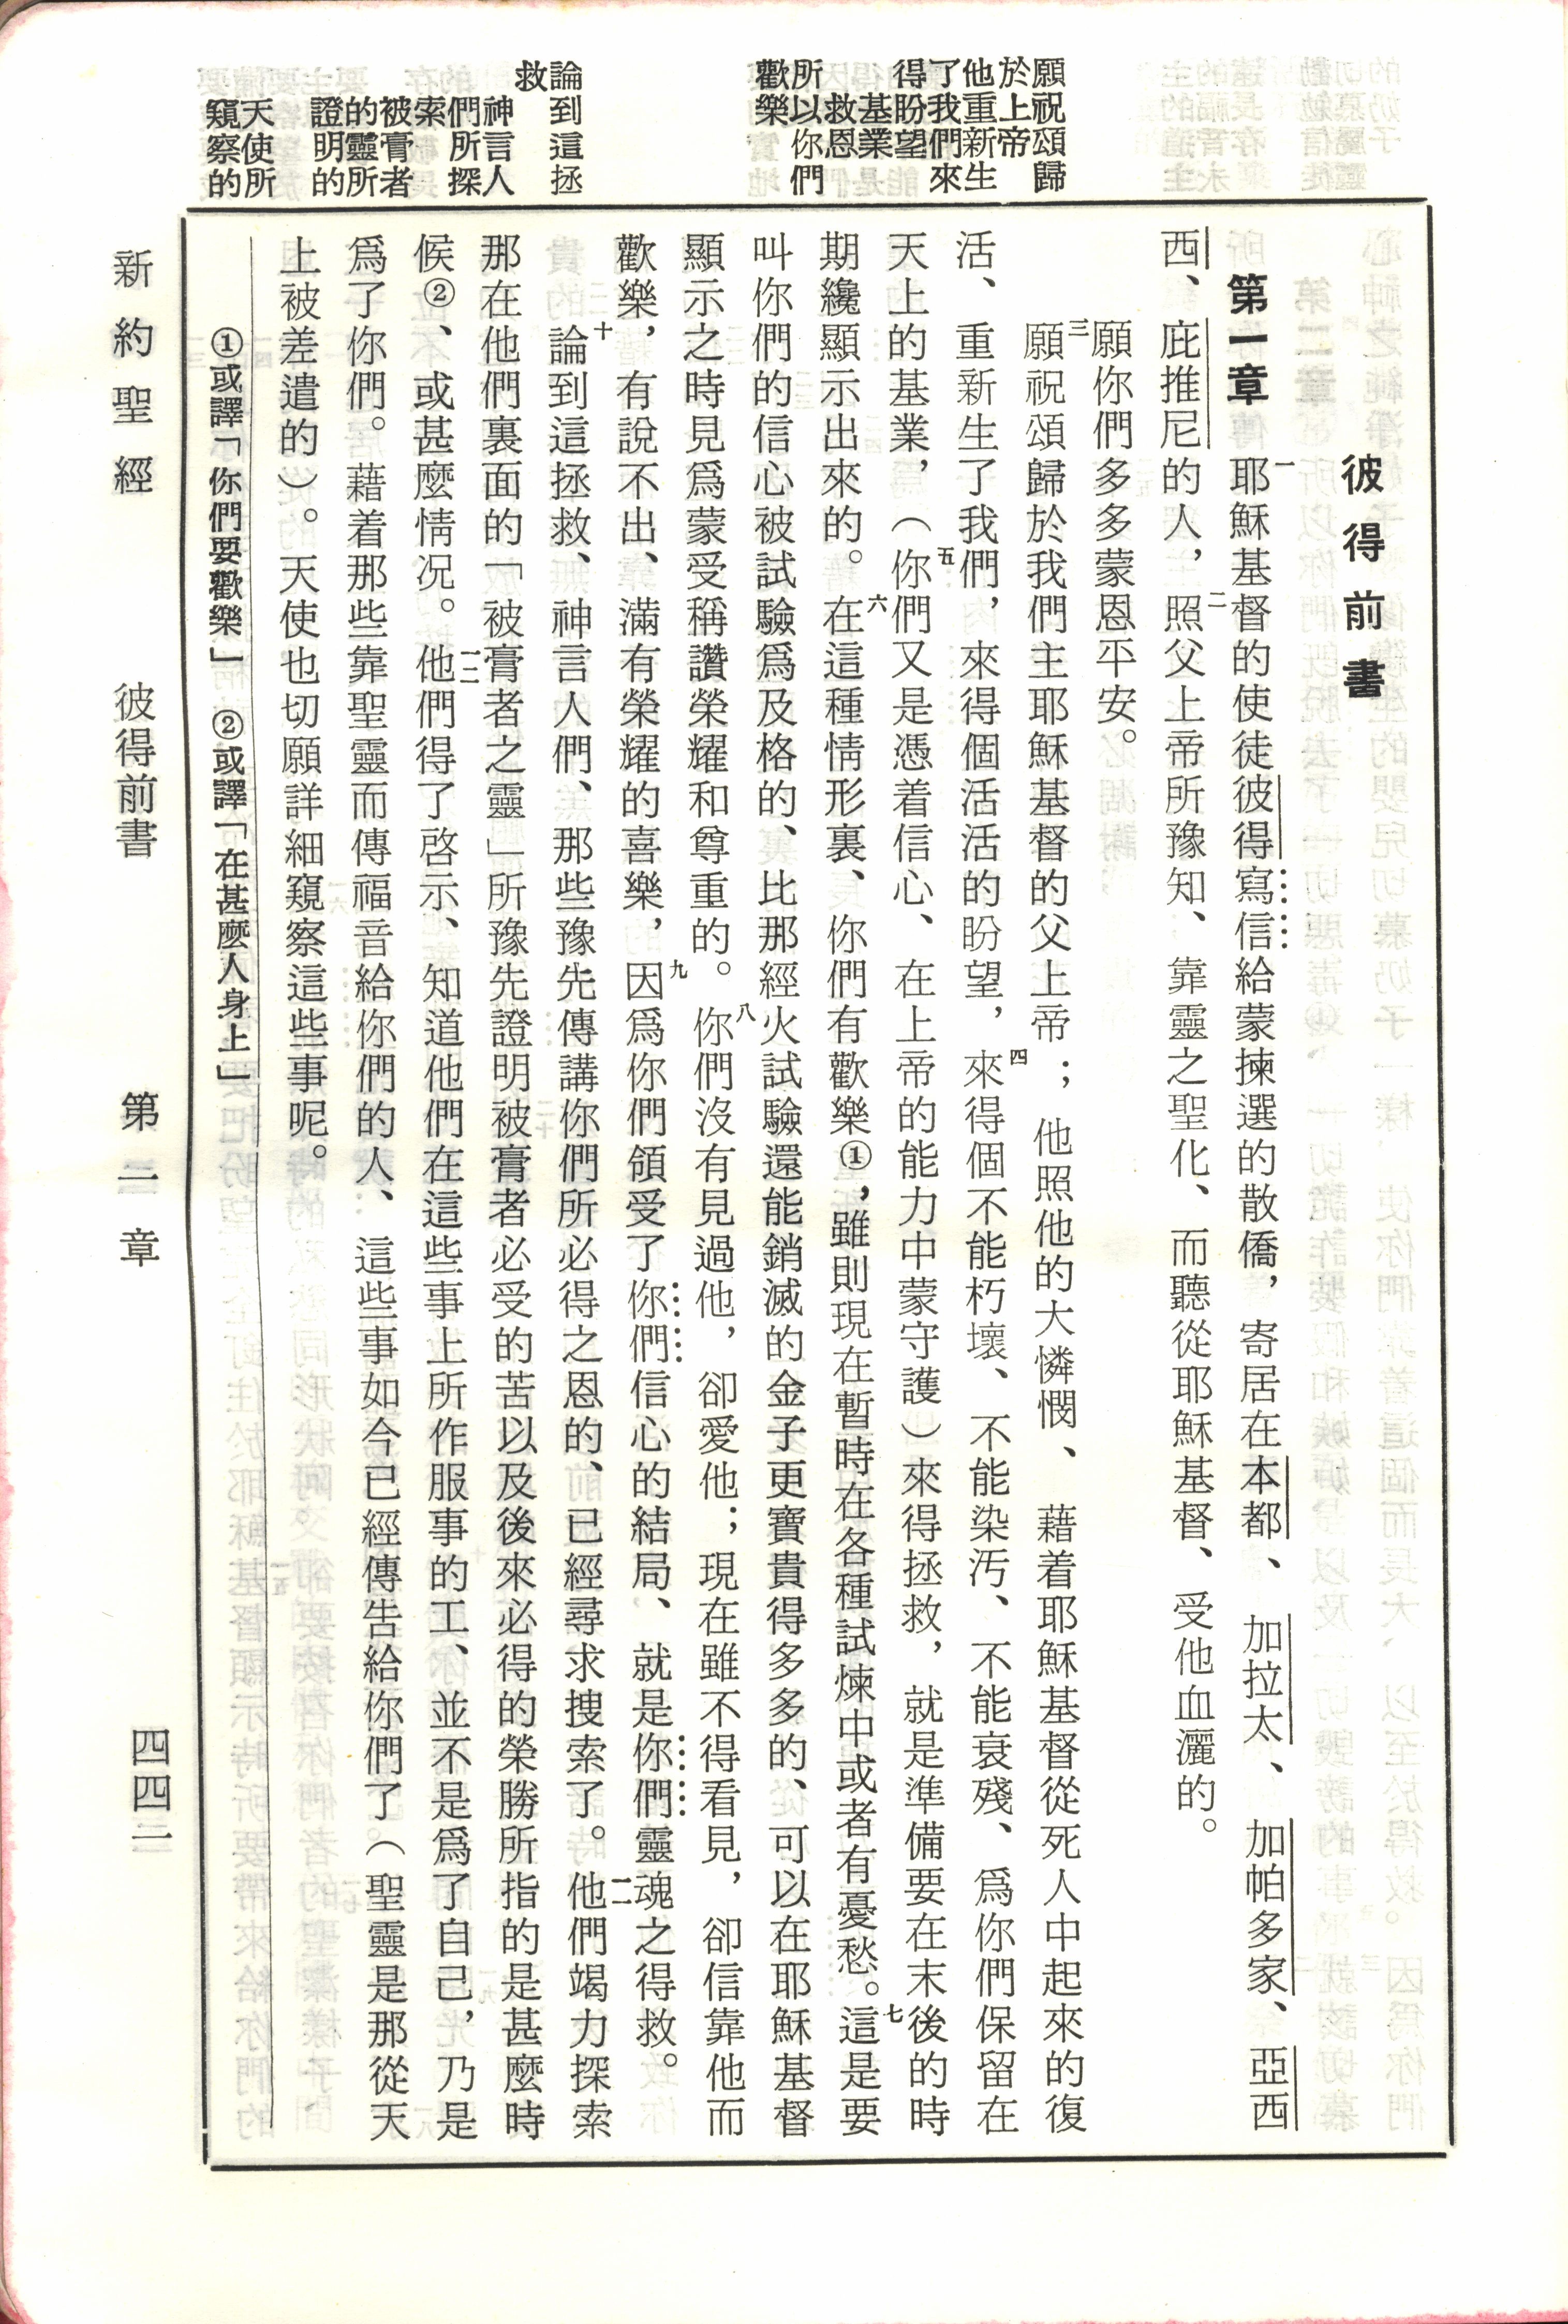 願祝頌歸
於上帝
他重新生
了我們來
得盼望
基業
救恩
所以你們
歡樂
論到這拯
救
神言人
們所探
索
被膏者
的靈所
證明的
天使所
窺察的
彼得前書
第一章 一耶穌基督的使徒彼得寫信給蒙揀選的散僑，寄居在本都、加拉太、加帕多家、亞西
西、庇推尼的人，二照父上帝所豫知、靠靈之聖化、而聽從耶穌基督、受他血灑的。
願你們多多蒙恩平安。
三願祝頌歸於我們主耶穌基督的父上帝；他照他的大憐憫、藉着耶穌基督從死人中起來的復
活、重新生了我們，來得個活活的盼望，四來得個不能朽壞、不能染汚、不能衰殘、爲你們保留在
天上的基業，（五你們又是憑着信心、在上帝的能力中蒙守護）來得拯救，就是準備要在末後的時
期纔顯示出來的。六在這種情形裏、你們有歡樂①，雖則現在暫時在各種試煉中或者有憂愁。七這是要
叫你們的信心被試驗爲及格的、比那經火試驗還能銷滅的金子更寶貴得多多的、可以在耶穌基督
顯示之時見爲蒙受稱讚榮耀和尊重的。八你們沒有見過他，卻愛他；現在雖不得看見，卻信靠他而
歡樂，有說不出、滿有榮耀的喜樂，九因爲你們領受了你們信心的結局、就是你們靈魂之得救。
十論到這拯救、神言人們、那些豫先傳講你們所必得之恩的、已經尋求搜索了。一一他們竭力探索
那在他們裏面的「被膏者之靈」所豫先證明被膏者必受的苦以及後來必得的榮勝所指的是甚麼時
候②、或甚麼情況。一二他們得了啓示、知道他們在這些事上所作服事的工、並不是爲了自己，乃是
爲了你們。藉着那些靠聖靈而傳福音給你們的人、這些事如今已經傳告給你們了（聖靈是那從天
上被差遣的）。天使也切願詳細窺察這些事呢。
①或譯「你們要歡樂」 ②或譯「在甚麼人身上」
新約聖經 彼得前書 第一章 四四一